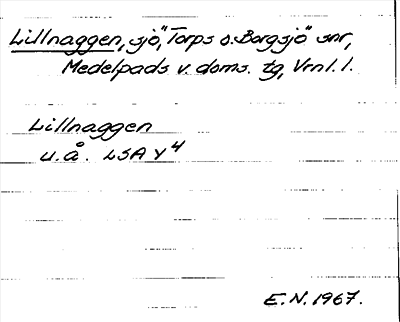 Lillnaggen, sjö, Torps o. Borgsjö snr,
Medelpads v. doms. tg, Vrnl. l.
Lillnaggen
u.å. LSA Y4
E.N. 1967.